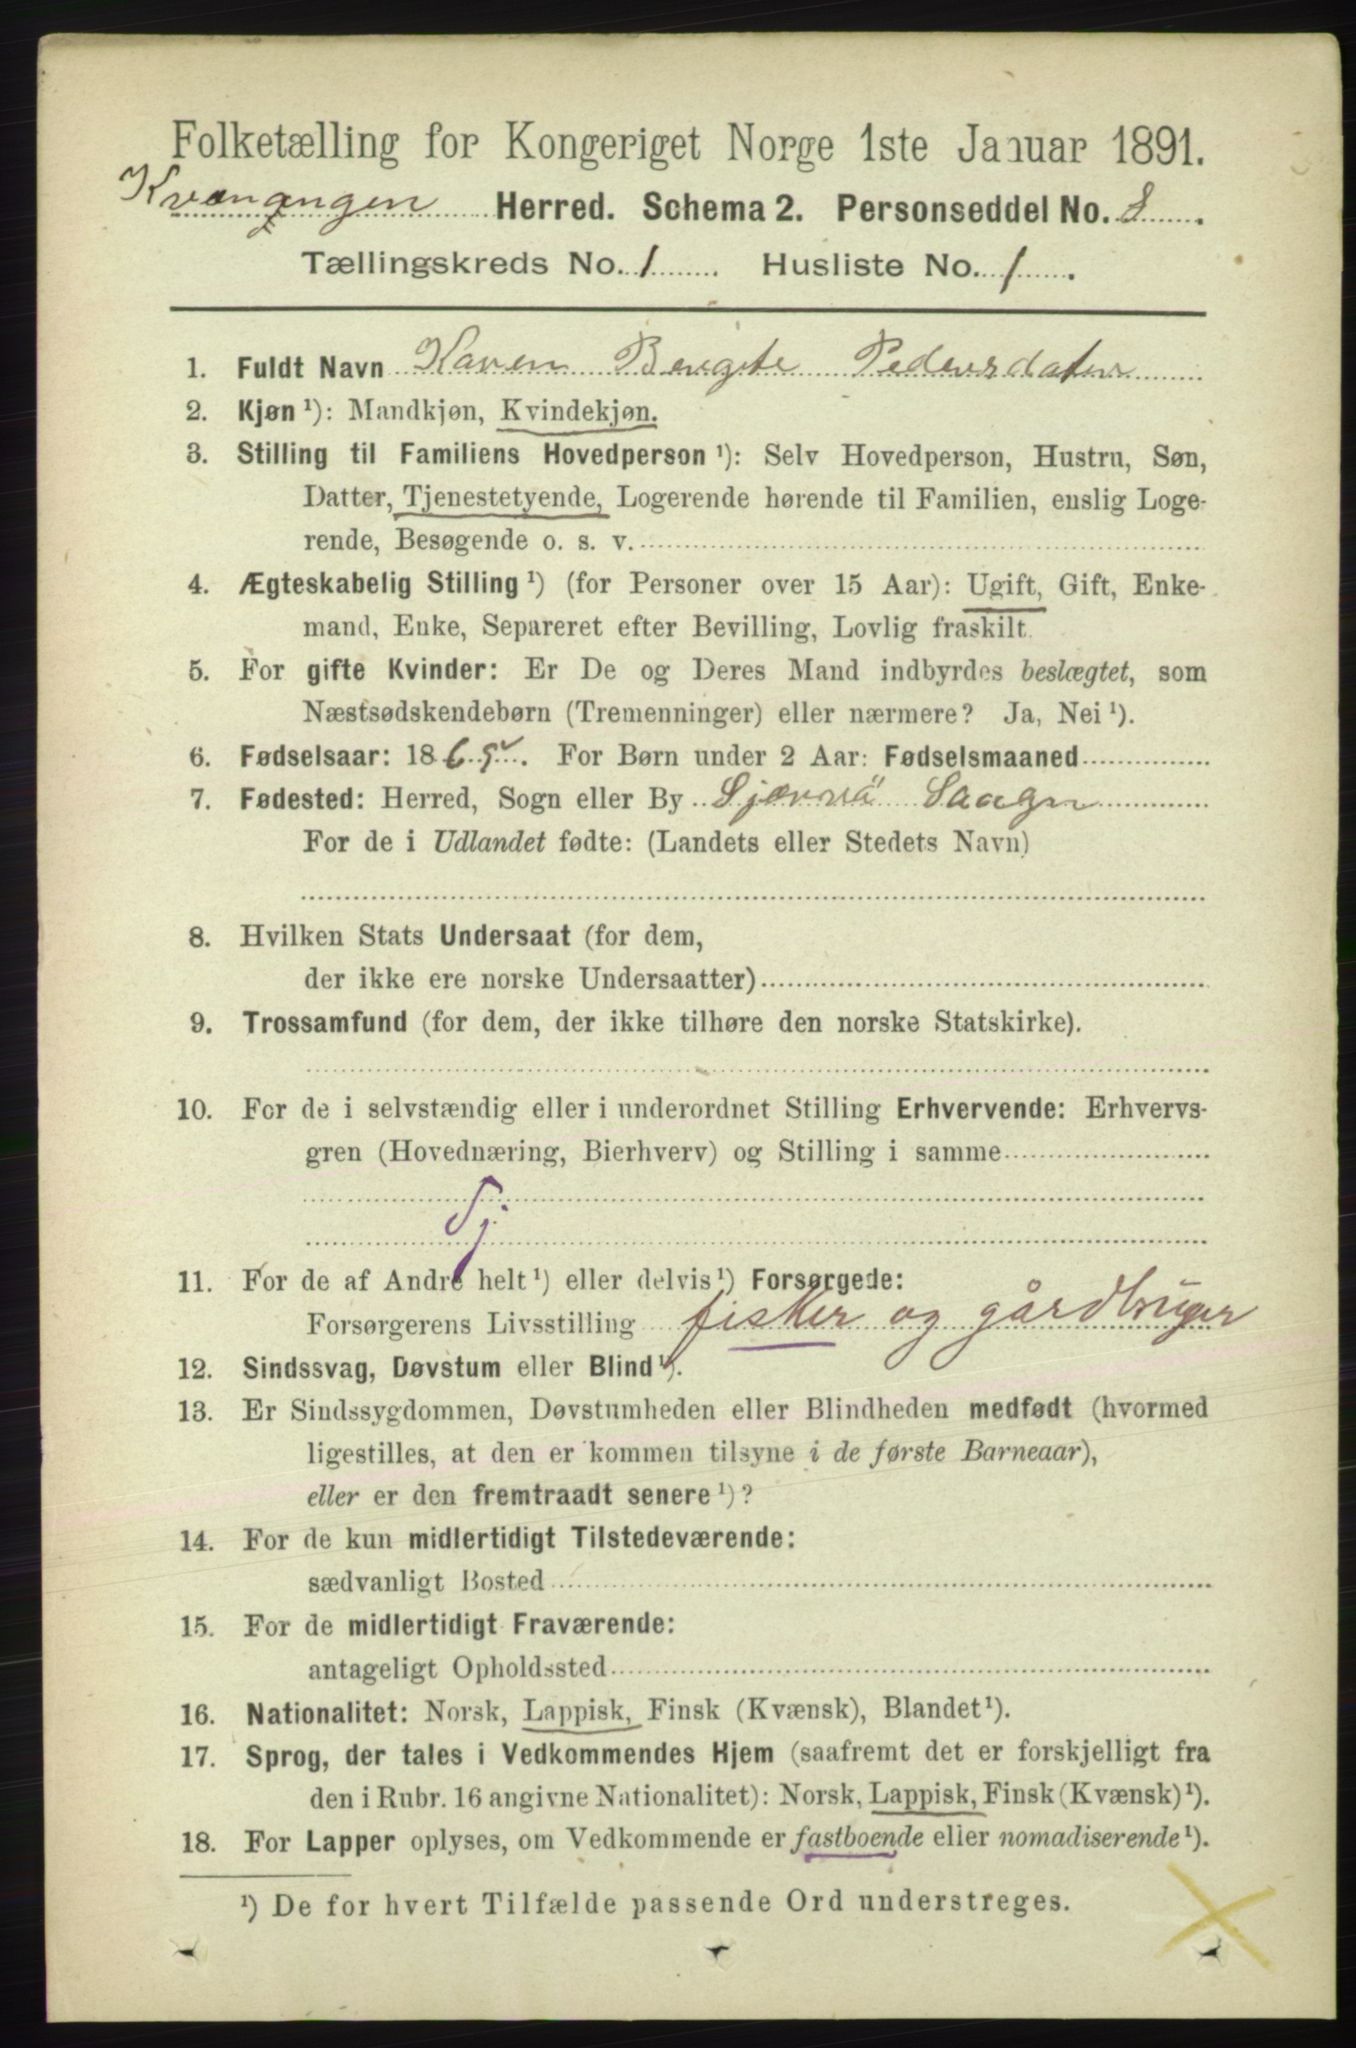 Folketælling for Kongeriget Norge 1ste Januar 1891.
Kvænangen Herred. Schema 2. Personseddel No. 8.
Tællingskreds No. 1 Husliste No. 1.
1. Fuldt Navn Karen Bergite Pedersdater
2. Kjøn ¹): Mandkjøn, Kvindekjøn.
3. Stilling til Familiens Hovedperson ¹): Selv Hovedperson, Hustru, Søn,
Datter, Tjenestetyende, Logerende hørende til Familien, enslig Loge-
rende, Besøgende o. s. v.
4. Ægteskabelig Stilling ¹) (for Personer over 15 Aar): Ugift, Gift, Enke-
mand, Enke, Separeret efter Bevilling, Lovlig fraskilt.
5. For gifte Kvinder: Er De og Deres Mand indbyrdes beslægtet, som
Næstsødskendebørn (Tremenninger) eller nærmere? Ja, Nei ¹).
6. Fødselsaar: 1865. For Børn under 2 Aar: Fødselsmaaned
7. Fødested: Herred, Sogn eller By Sjærvö Saagn
For de i Udlandet fødte: (Landets eller Stedets Navn)
8. Hvilken Stats Undersaat (for dem,
der ikke ere norske Undersaatter)
9. Trossamfund (for dem, der ikke tilhøre den norske Statskirke).
10. For de i selvstændig eller i underordnet Stilling Erhvervende: Erhvervs-
gren (Hovednæring, Bierhverv) og Stilling i samme
Tj
11. For de af Andre helt ¹) eller delvis ¹) Forsørgede:
Forsørgerens Livsstilling fisker og gårdbruger
12. Sindssvag, Døvstum eller Blind ¹).
13. Er Sindssygdommen, Døvstumheden eller Blindheden medfødt (hvormed
ligestilles, at den er kommen tilsyne i de første Barneaar),
eller er den fremtraadt senere ¹)?
14. For de kun midlertidigt Tilstedeværende:
sædvanligt Bosted
15. For de midlertidigt Fraværende:
antageligt Opholdssted
16. Nationalitet: Norsk, Lappisk, Finsk (Kvænsk), Blandet ¹).
17. Sprog, der tales i Vedkommendes Hjem (saafremt det er forskjelligt fra
den i Rubr. 16 angivne Nationalitet): Norsk, Lappisk, Finsk (Kvænsk) ¹).
18. For Lapper oplyses, om Vedkommende er fastboende eller nomadiserende ¹).
¹) De for hvert Tilfælde passende Ord understreges.